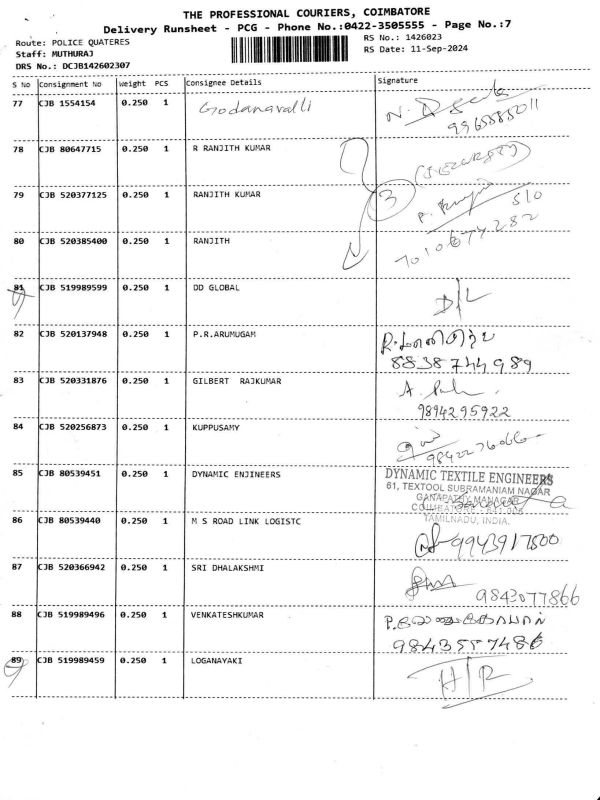 THE PROFESSIONAL COURIERS, COIMBATORE
Delivery Runsheet - PCG - Phone No.:0422-3505555 - Page No.:7
Route: POLICE QUATERES
Staff: MUTHURAJ
DRS No.: DCJB142602307
RS No.: 1426023
RS Date: 11-Sep-2024
S No Consignment No Weight PCS Consignee Details Signature
77 CJB 1554154 0.250 1 Godanavalli
9965885011
78 CJB 80647715 0.250 1 R RANJITH KUMAR (SECURITY)
79 CJB 520377125 0.250 1 RANJITH KUMAR 3 S/O
80 CJB 520385400 0.250 1 RANJITH 7010674282
81 CJB 519989599 0.250 1 DD GLOBAL D/L
82 CJB 520137948 0.250 1 P.R.ARUMUGAM
8838744989
83 CJB 520331876 0.250 1 GILBERT RAJKUMAR
9894295922
84 CJB 520256873 0.250 1 KUPPUSAMY
85 CJB 80539451 0.250 1 DYNAMIC ENJINEERS DYNAMIC TEXTILE ENGINEERS
61, TEXTOOL SUBRAMANIAM NAGAR
GANAPATHY MANAGAR
TAMILNADU, INDIA.
86 CJB 80539440 0.250 1 M S ROAD LINK LOGISTC
9943917500
87 CJB 520366942 0.250 1 SRI DHALAKSHMI
9843077866
88 CJB 519989496 0.250 1 VENKATESHKUMAR
9843557486
89 CJB 519989459 0.250 1 LOGANAYAKI H/R